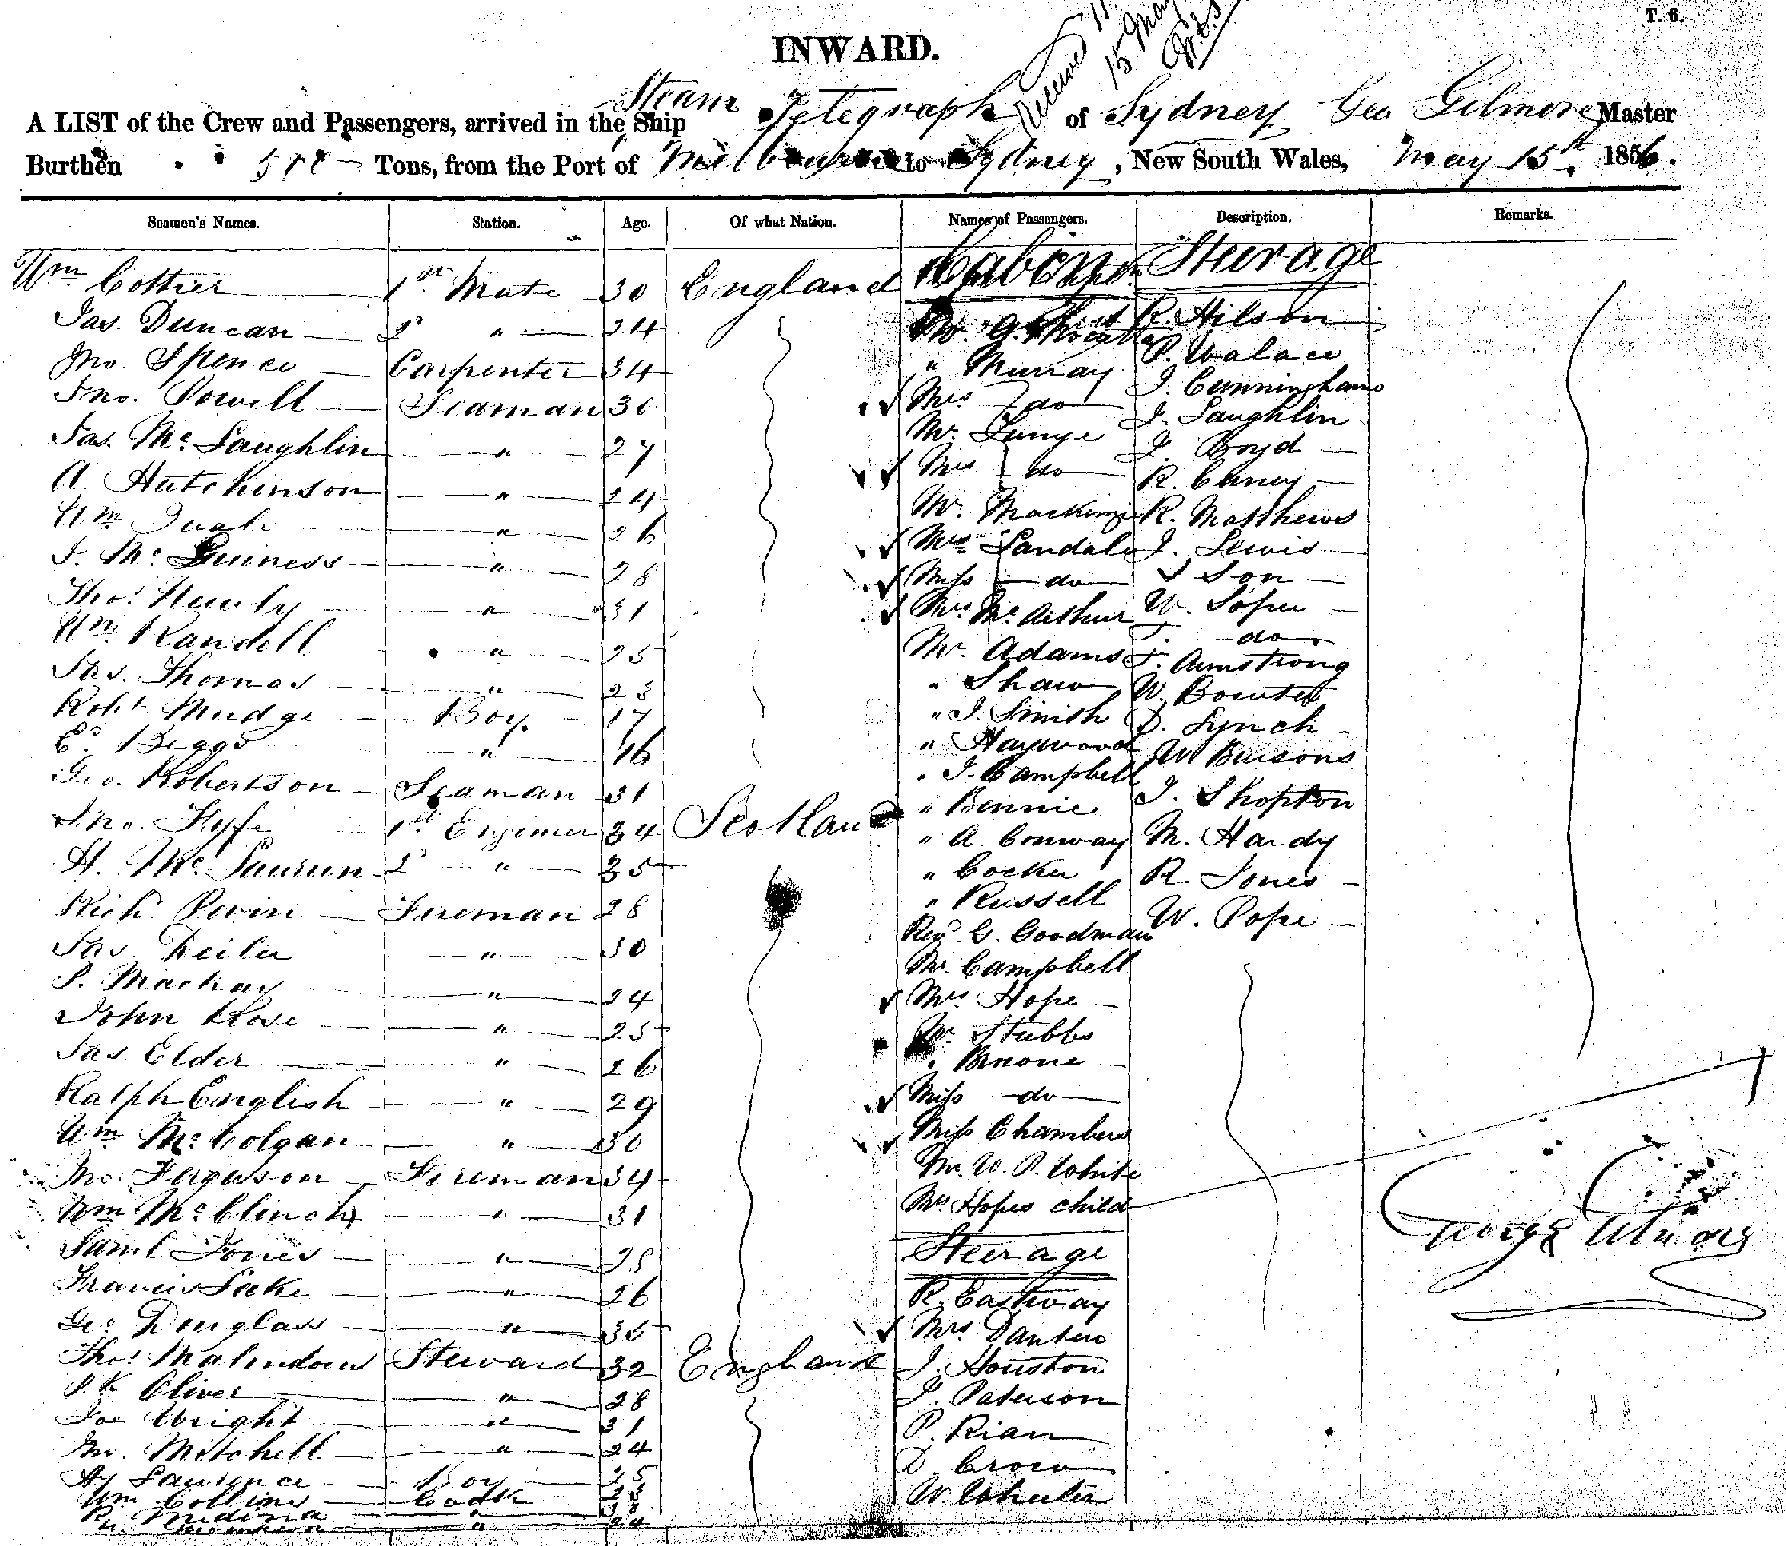 T. 6.
INWARD.
Received 15 May
A LIST of the Crew and Passengers, arrived in the Steam Ship Telegraph of Sydney Geo Gilmore Master
Burthen Tons, from the Port of Melbourne to Sydney, New South Wales, May 15th. 1856.
Seamen's Names. Station. Age. Of what Nation. Names of Passengers. Description. Remarks.
Cabin Steerage
Wm Cottier 1st Mate 30 England
Jas. Duncan 2d " 24 R. Hilson
Jno Spence Carpenter 34 " Murray P. Walace
Jno. Powell Seaman 30 Mrs do J. Cunninghame
Jas. Mc Laughlin " 27 Mr. Lunge J. Laughlin
A. Hutchinson " 24 Mrs do J. Boyd
Wm " 26 Mr. Mackinze R. Caney
J. Mc Guiness " 28 Mrs Landale R. Matthews
Thos " 31 Miss do J. Lewis
Wm Randell " 25 Mrs Mc Arthur & Son
Jas. Thomas " 23 Mr. Adams W. Soper
Robt Mudge Boy 17 " Shaw do
Ed. Beggs " 16 " J. Smith T. Armstrong
Geo. Robertson Seaman 31 " Haywood W.
Jno. Fyfe 1st Engineer 34 Scotland " J. Campbell D. Lynch
H. Mc Laurin 2d " 35 " Bennie W. Buisons
Richd Fireman 28 " A Conway J. Shopton
Jas " 30 " Cocker M. Hardy
Mackay " 24 " Russell R Jones
John Rose " 25 Revd G. Goodman W. Pope
Jas Elder " 26 Mr. Campbell
Ralph English " 29 Mrs Hope
Wm Mc Colgan " 30 Mr. Stubbs
Jno Ferguson Fireman 34 " Bnone
Wm Mc Clinchy " 31 Miss do
Saml Jones " 25 Miss Chambers
Francis Lake " 26 Mr. W. P. White
Geo Douglass " 35 Mrs Hopes child
Thos Steward 32 England Steerage
Oliver " 28 R. Eastway
Jos Wright " 31 Mrs
Jno. Mitchell " 24 J. Houston
Hy Lawrence Boy J. Paterson
Wm Collins Cook P. Rian
Medina " D Crow
W. Wheeler
George Gilmore